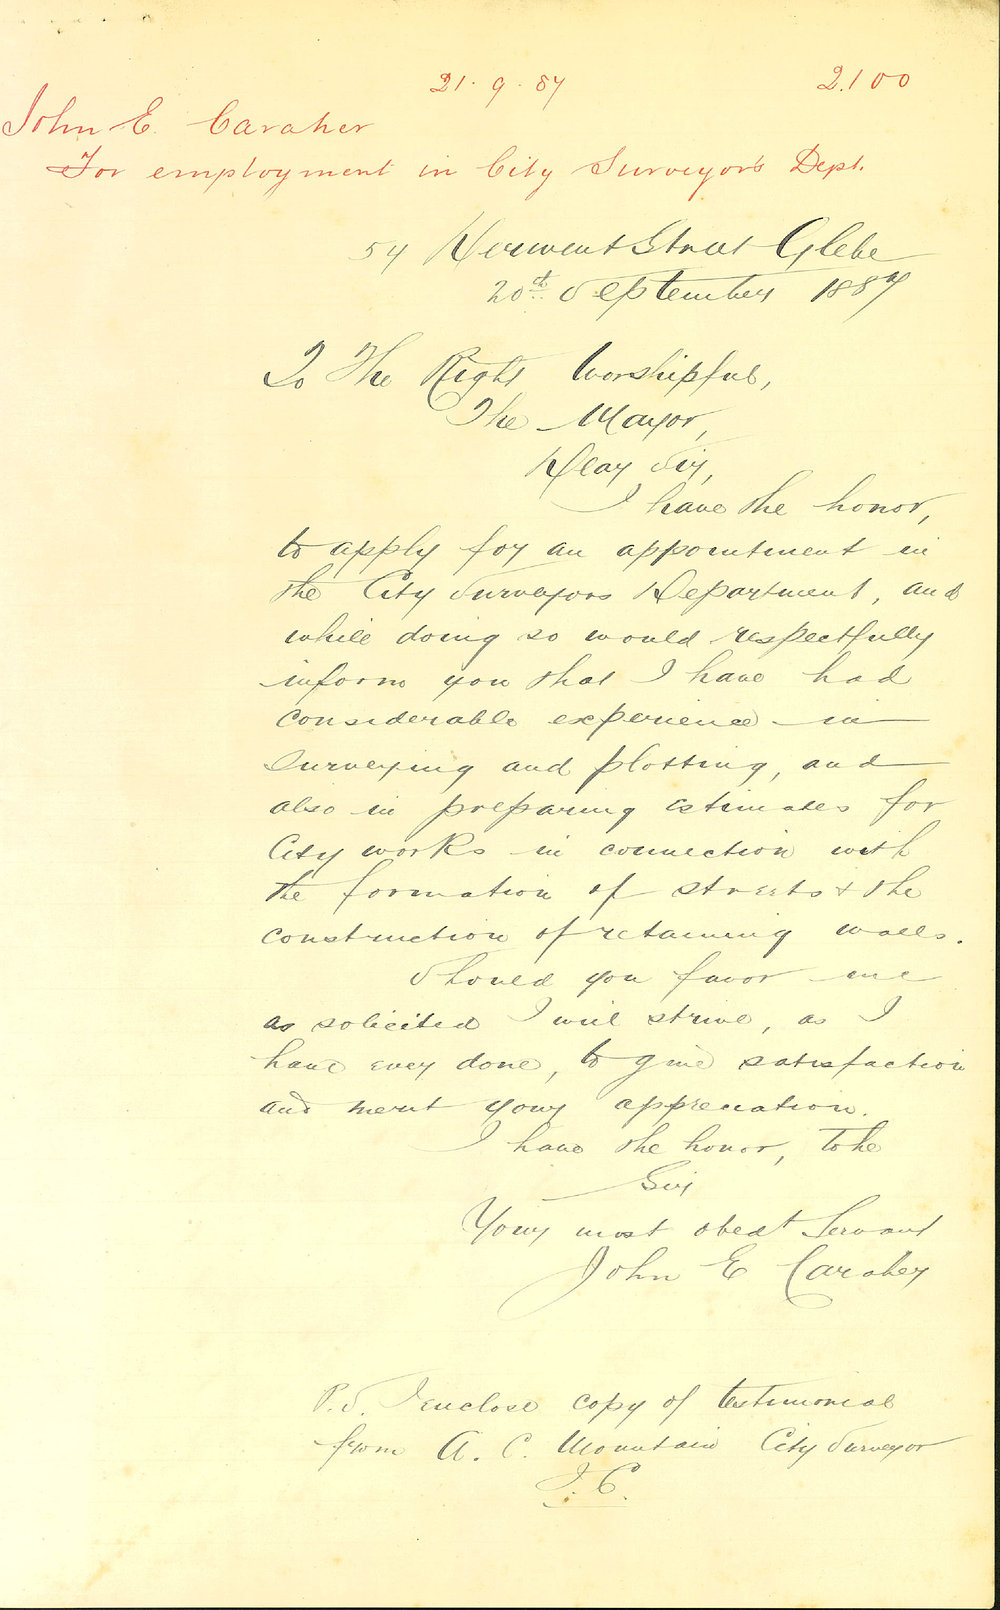 21. 9. 87 2100
John E. Caraher
For employment in City Surveyor's Dept.
54 Derwent Street Glebe
20th September 1887
To The Right Worshipful,
The Mayor,
Dear Sir,
I have the honor,
to apply for an appointment in
the City Surveyors Department, and
while doing so would respectfully
inform you that I have had
considerable experience in
surveying and plotting, and
also in preparing estimates for
City works in connection with
the formation of streets & the
construction of retaining walls.
Should you favor me
as solicited I will strive, as I
have ever done, to give satisfaction
and merit your appreciation.
I have the honor, to be
Sir
Your most obedt Servant
John E Caraher
P.S. I enclose copy of testimonial
from A. C. Mountain City Surveyor
J. C.